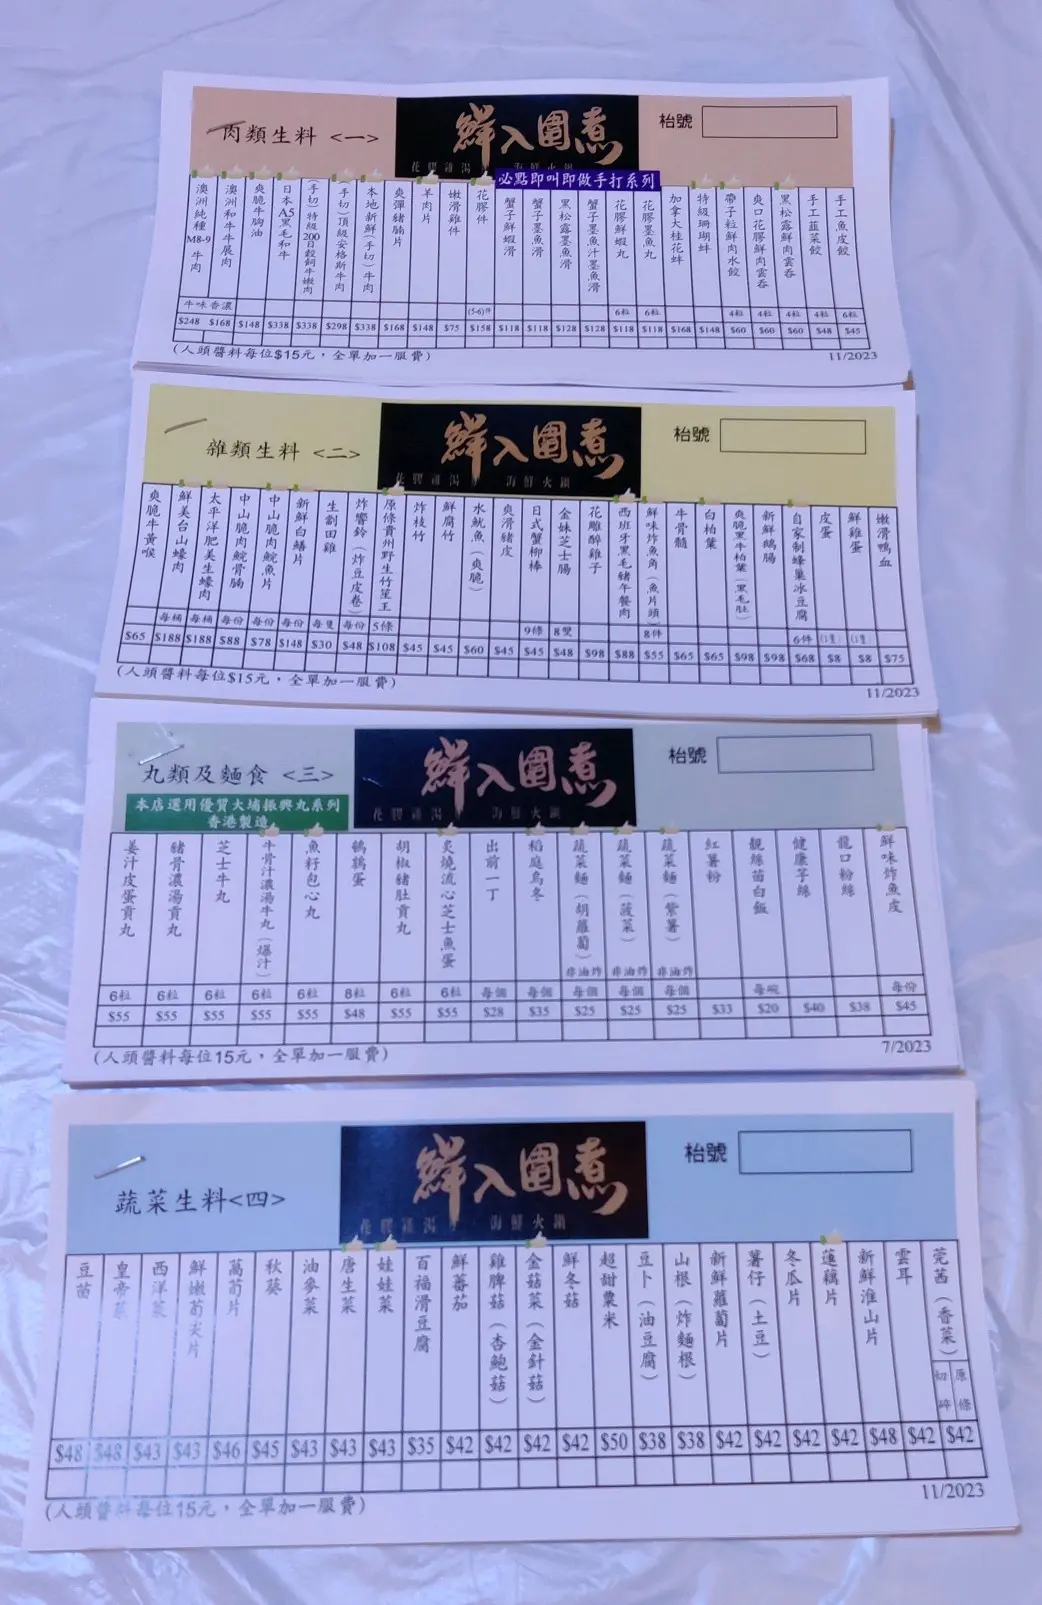 肉類生料 <一>
鮮入圍煮
花膠雞湯 海鮮火鍋
枱號
必點即叫即做手打系列
澳洲純種M8-9牛肉 牛味香濃 $248
澳洲和牛牛展肉 牛味香濃 $168
爽脆牛胸油 $148
日本A5黑毛和牛 $338
(手切)特級200日穀飼牛嫩肉 $338
(手切)頂級安格斯牛肉 $298
本地新鮮(手切)牛肉 $338
爽彈豬腩片 $168
羊肉片 $148
嫩滑雞件 $75
花膠件 (5-6)件 $158
蟹子鮮蝦滑 $118
蟹子墨魚滑 $118
黑松露墨魚滑 $128
蟹子墨魚汁墨魚滑 $128
花膠鮮蝦丸 6粒 $118
花膠墨魚丸 6粒 $118
加拿大桂花蚌 $168
特級珊瑚蚌 $148
帶子粒鮮肉水餃 4粒 $60
爽口花膠鮮肉雲吞 4粒 $60
黑松露鮮肉雲吞 4粒 $60
手工韮菜餃 4粒 $48
手工魚皮餃 6粒 $45
(人頭醬料每位$15元，全單加一服費)
11/2023
雜類生料 <二>
鮮入圍煮
花膠雞湯 海鮮火鍋
枱號
爽脆牛黃喉 $65
鮮美台山蠔肉 每桶 $188
太平洋肥美生蠔肉 每桶 $188
中山脆肉鯇骨腩 每份 $88
中山脆肉鯇魚片 每份 $78
新鮮白鱔片 每份 $148
生劏田雞 每隻 $30
炸響鈴(炸豆皮卷) 每份 $48
原條貴州野生竹笙王 5條 $108
炸枝竹 $45
鮮腐竹 $45
水魷魚(爽脆) $60
爽滑豬皮 $45
日式蟹柳棒 9條 $45
金妹芝士腸 8雙 $48
花雕醉雞子 $98
西班牙黑毛豬午餐肉 $88
鮮味炸魚角(魚片頭) 8件 $55
牛骨髓 $65
白柏葉 $65
爽脆黑牛柏葉(黑毛肚) $98
新鮮鵝腸 $98
自家制蜂巢冰豆腐 6件 $68
皮蛋 (1隻) $8
鮮雞蛋 (1隻) $8
嫩滑鴨血 $75
(人頭醬料每位$15元，全單加一服費)
11/2023
丸類及麵食 <三>
本店選用優質大埔振興丸系列
香港製造
鮮入圍煮
花膠雞湯 海鮮火鍋
枱號
姜汁皮蛋貢丸 6粒 $55
豬骨濃湯貢丸 6粒 $55
芝士牛丸 6粒 $55
牛骨汁濃湯牛丸(爆汁) 6粒 $55
魚籽包心丸 6粒 $55
鵪鶉蛋 8粒 $48
胡椒豬肚貢丸 6粒 $55
炙燒流心芝士魚蛋 6粒 $55
出前一丁 每個 $28
稻庭烏冬 每個 $35
蔬菜麵(胡蘿蔔) 非油炸 每個 $25
蔬菜麵(菠菜) 非油炸 每個 $25
蔬菜麵(紫薯) 非油炸 每個 $25
紅薯粉 $33
靚絲苗白飯 每碗 $20
健康芋絲 $40
龍口粉絲 $38
鮮味炸魚皮 每份 $45
(人頭醬料每位15元，全單加一服費)
7/2023
蔬菜生料<四>
鮮入圍煮
花膠雞湯 海鮮火鍋
枱號
豆苗 $48
皇帝菜 $48
西洋菜 $43
鮮嫩荀尖片 $43
萵荀片 $46
秋葵 $45
油麥菜 $43
唐生菜 $43
娃娃菜 $43
百福滑豆腐 $35
鮮蕃茄 $42
雞脾菇(杏鮑菇) $42
金菇菜(金針菇) $42
鮮冬菇 $42
超甜粟米 $50
豆卜(油豆腐) $38
山根(炸麵根) $38
新鮮蘿蔔片 $42
薯仔(土豆) $42
冬瓜片 $42
蓮藕片 $42
新鮮淮山片 $48
雲耳 $42
芫茜(香菜) 切碎 原條 $42
(人頭醬料每位15元，全單加一服費)
11/2023